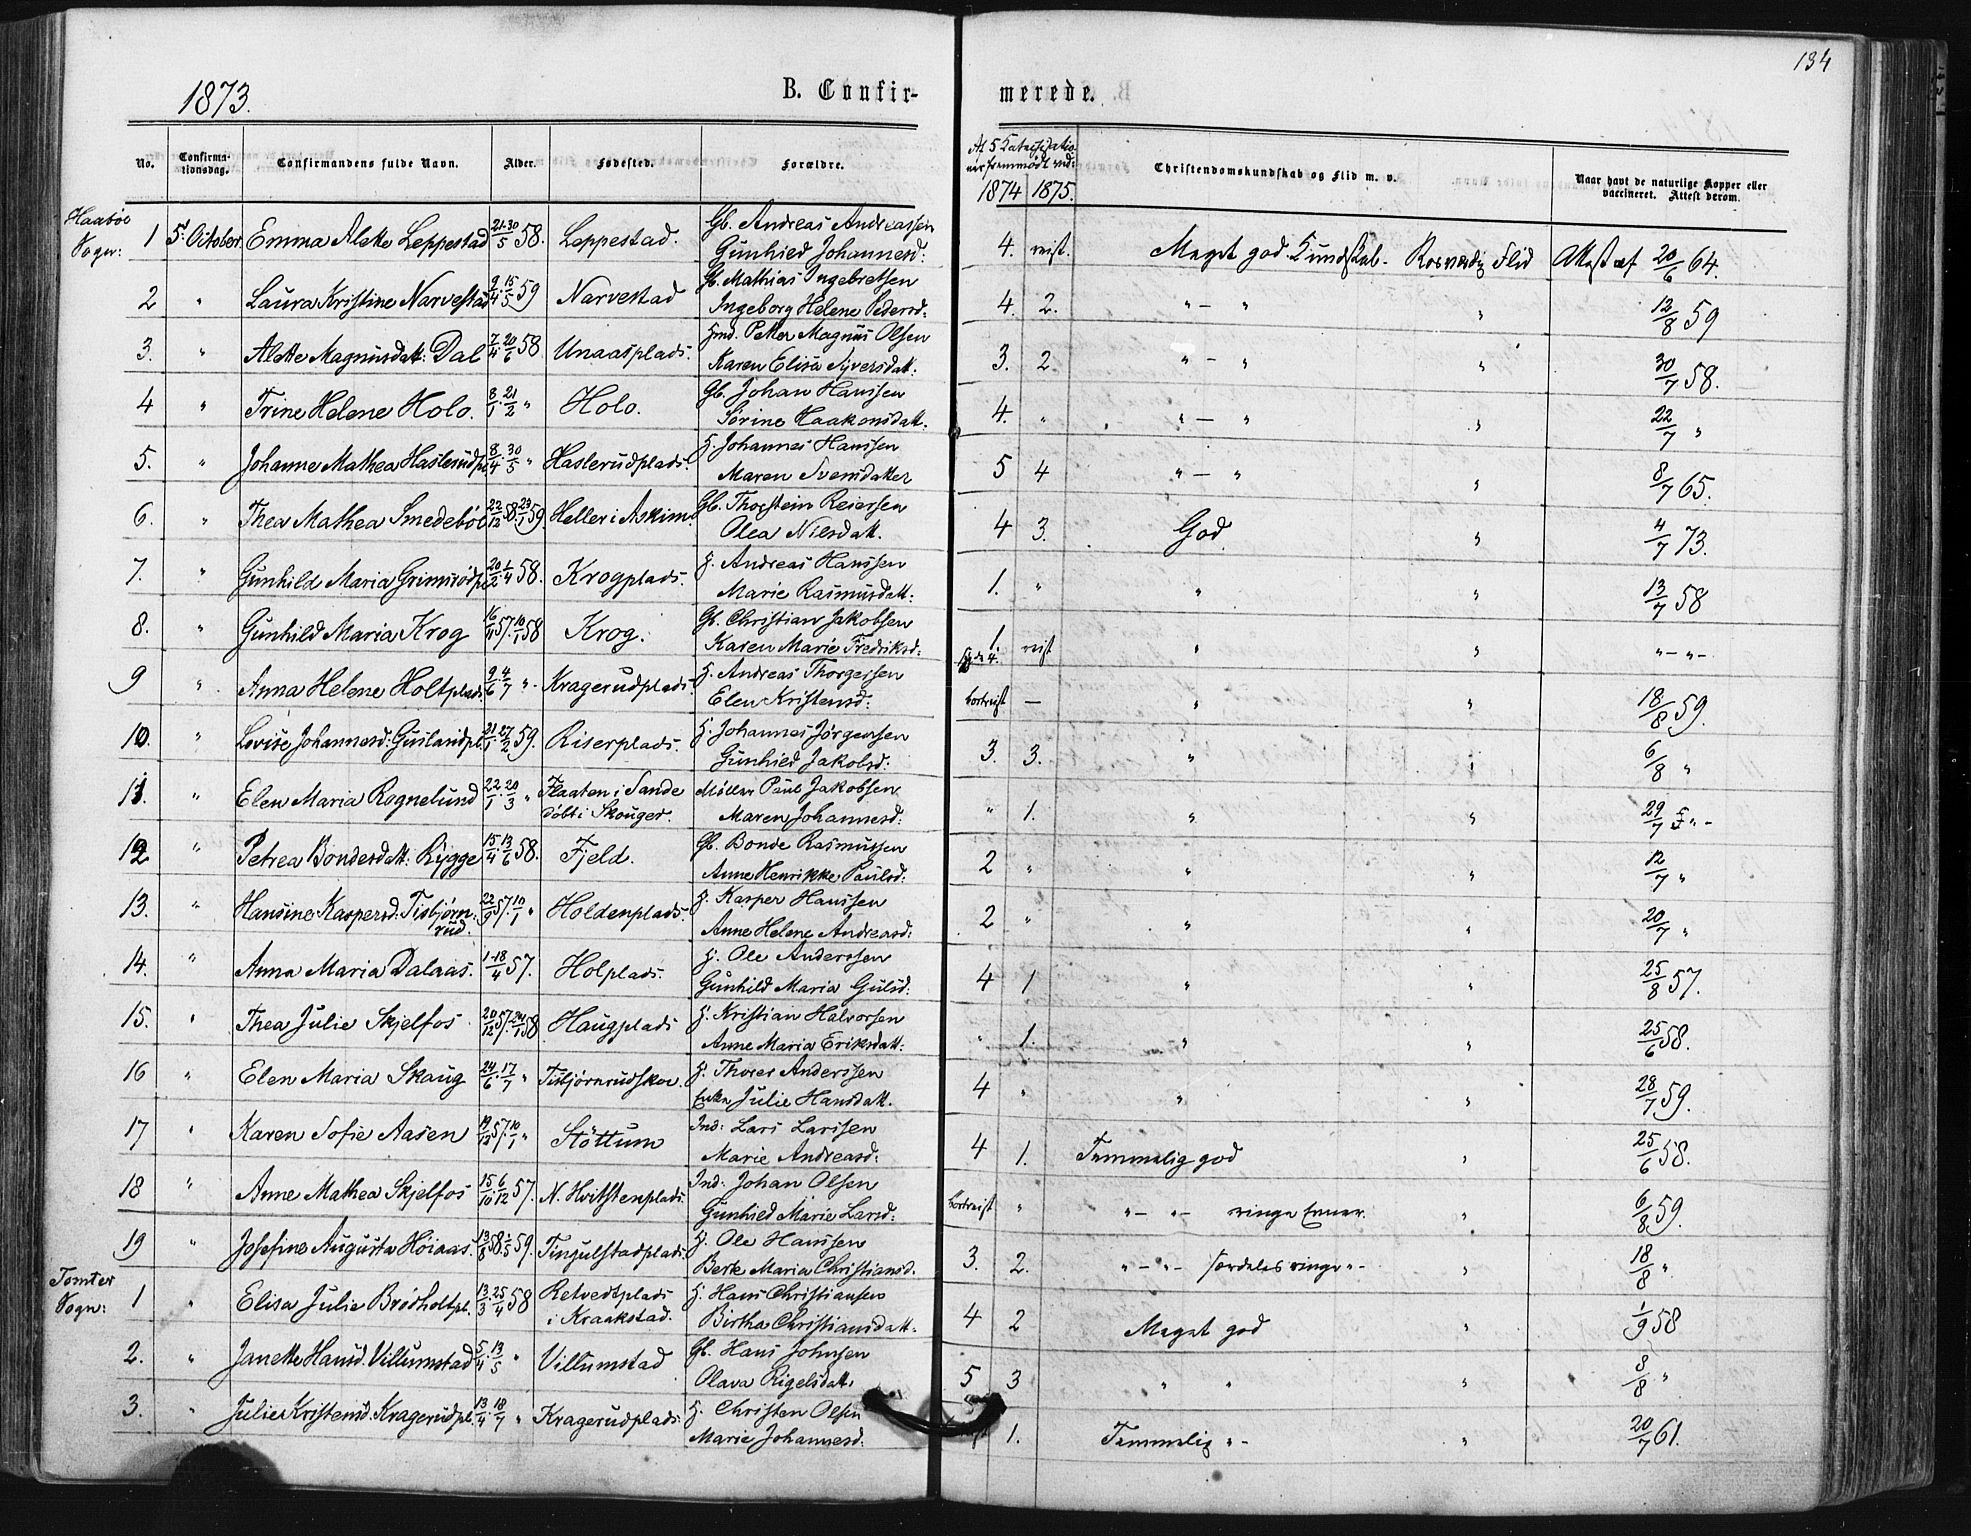 134
1873.
B. Confir-
merede.
No.
Confirma-
tionsdag.
Confirmandens fulde Navn.
Alder.
Fødested.
Forældre.
1874 1875.
Christendomskundskab og Flid m. v.
Naar havt de naturlige Kopper eller
vaccineret. Attest derom.
Haabøl
Sogn:
1 5. October Emma Alette Leppestad 21/5 30 58. Leppestad. Gb. Andreas Andreassen
Gunhild Johannesd: 4. reist. Meget god Kundskab. Rosværdig Flid Attest af 20/6 64.
2 " Laura Kristine Narvestad 9/4 15/5 59 Narvestad Gb. Mathias Ingebretsen
Ingeborg Helene Pedersd: 4. 2. " — " " 12/8 59
3. " Alette Magnusdatt: Dal 7/4 20/6 58. Unaasplads. Hmd. Petter Magnus Olsen
Karen Elise Syversdatt: 3. 2. " — " " 30/7 58.
4 " Trine Helene Holo. 8/1 21/2 " Holo. Gb. Johan Hanssen
Sørine Haakonsdatt. 4. " " — " " 22/7 "
5. " Johanne Mathea Haslerudpl. 8/4 30/5 " Haslerudplads. H. Johannes Hanssen
Maren Svensdatter 5 4 " — " " 8/7 65.
6. " Thea Mathea Smedebøl 22/12 58. 23/1 59 Heller i Askim Gb. Thorstein Reiersen
Olea Nilsdatt. 4 3. God. " 4/7 73.
7. " Gunhild Maria Grimsrødpl. 20/2 1/4 58. Krogplads. H. Andreas Hanssen
Marie Rasmusdatt: 1. " " " 13/7 58
8. " Gunhild Maria Krog 16/11 57. 10/1 58 Krog. Gb. Christian Jakobsen
Karen Marie Fredriksd: 1. reist " " " — " —
9 " Anna Helene Holtplads. 9/6 4/7 " Kragerudplads. H. Andreas Thorgersen
Elen Kristensd: bortreist — " " 18/8 59.
10. " Lovise Johannesd: Guslundpl. 21/1 27/2 59. Riserplads. H. Johannes Jørgensen
Gunhild Jakobsd: 3. 3. " " 6/8 "
11. " Elen Maria Rognelund 22/1 20/3 " Flaaten i Sande
døbt i Skouger. Møller Paul Jakobsen
Maren Johannesd: " 1. " " 29/7 "
12 " Petrea Bondesdatt. Rygge 15/4 13/6 58. Fjeld. Gb. Bonde Rasmussen
Anne Henrikke Paulsd: 2 " " " 12/7 "
13. " Hansine Kaspersd: Tisbjørn-
rud. 22/9 57. 10/1 " Holdenplads. H. Kasper Hanssen
Anne Helene Andreasd: 2 " " " 20/7 "
14. " Anna Maria Dalaas. 1. 18/4 57. Holplads. H. Ole Anderssen
Gunhild Maria Gulsd: 4 1 " " 25/8 57.
15. " Thea Julie Skjelfos 20/12 57. 24/1 58 Haugplads H. Kristian Halvorsen
Anne Maria Eriksdatt: " 1. " " 25/6 58.
16 " Elen Maria Skaug 24/6 17/7 " Tisbjørnrudskov. H. Thorer Anderssen
Enke Julie Hansdatt. 4 " " " 28/7 59.
17 " Karen Sofie Aasen 19/12 57. 10/1 " Støttum Ind: Lars Larssen
Marie Andreasd: 4 1. Temmelig god " 25/6 58.
18 " Anne Mathea Skjelfos 15/10 6/12 57. N. Hvitstenplads. Ind: Johan Olsen
Gunhild Marie Larsd: bortreist " " — " — ringe Evner. " 6/8 59.
19 " Josefine Augusta Höiaas. 13/8 58. 1/5 59. Tingulstadplads. H. Ole Hanssen
Berte Maria Christiansd. 3. 2. " — " — særdeles ringe " — " 18/8 "
Tomter
Sogn:
1 " Elisa Julie Brødholtpl. 13/3 25/4 58 Retvedtplads
i Kraakstad. H. Hans Christiansen
Birthe Christiansdatt. 4 2 Meget god " 1/9 58
2. " Janette Hansd. Villumstad 5/4 13/5 " Villumstad Gb. Hans Johnsen
Olava Rigelsdatt. 5 3 " " " 8/8 "
3. " Julie Kristensd. Kragerudpl. 13/4 18/7 " Kragerudplads. H. Christen Olsen
Marie Johannesd. 1. Temmelig " — " 20/7 61.